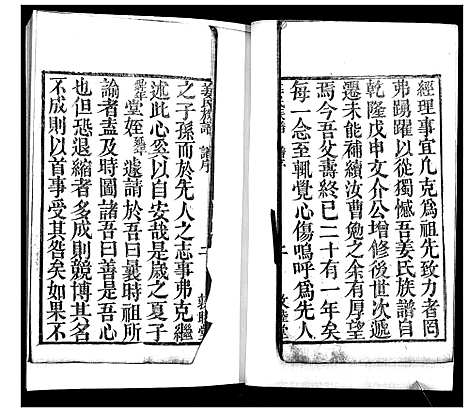 經理事宜凡克為祖先致力者罔
弗踴躍以從獨憾吾姜氏族譜自
乾隆戊申文介公增修後世次遞
遷未能補續汝曹勉之余有厚望
焉今吾父壽終已二十有一年矣
每一念至輒覺心傷嗚呼為先人
敦睦堂
姜氏族譜 譜序 二 敦睦堂
之子孫而於先人之志事弗克繼
述此心奚以自安哉是歲之夏子
年堂姪 遽請於吾曰曩時祖所
諭者盍及時圖諸吾曰善是吾心
也但恐退縮者多成則競博其名
不成則以首事受其咎矣如果不